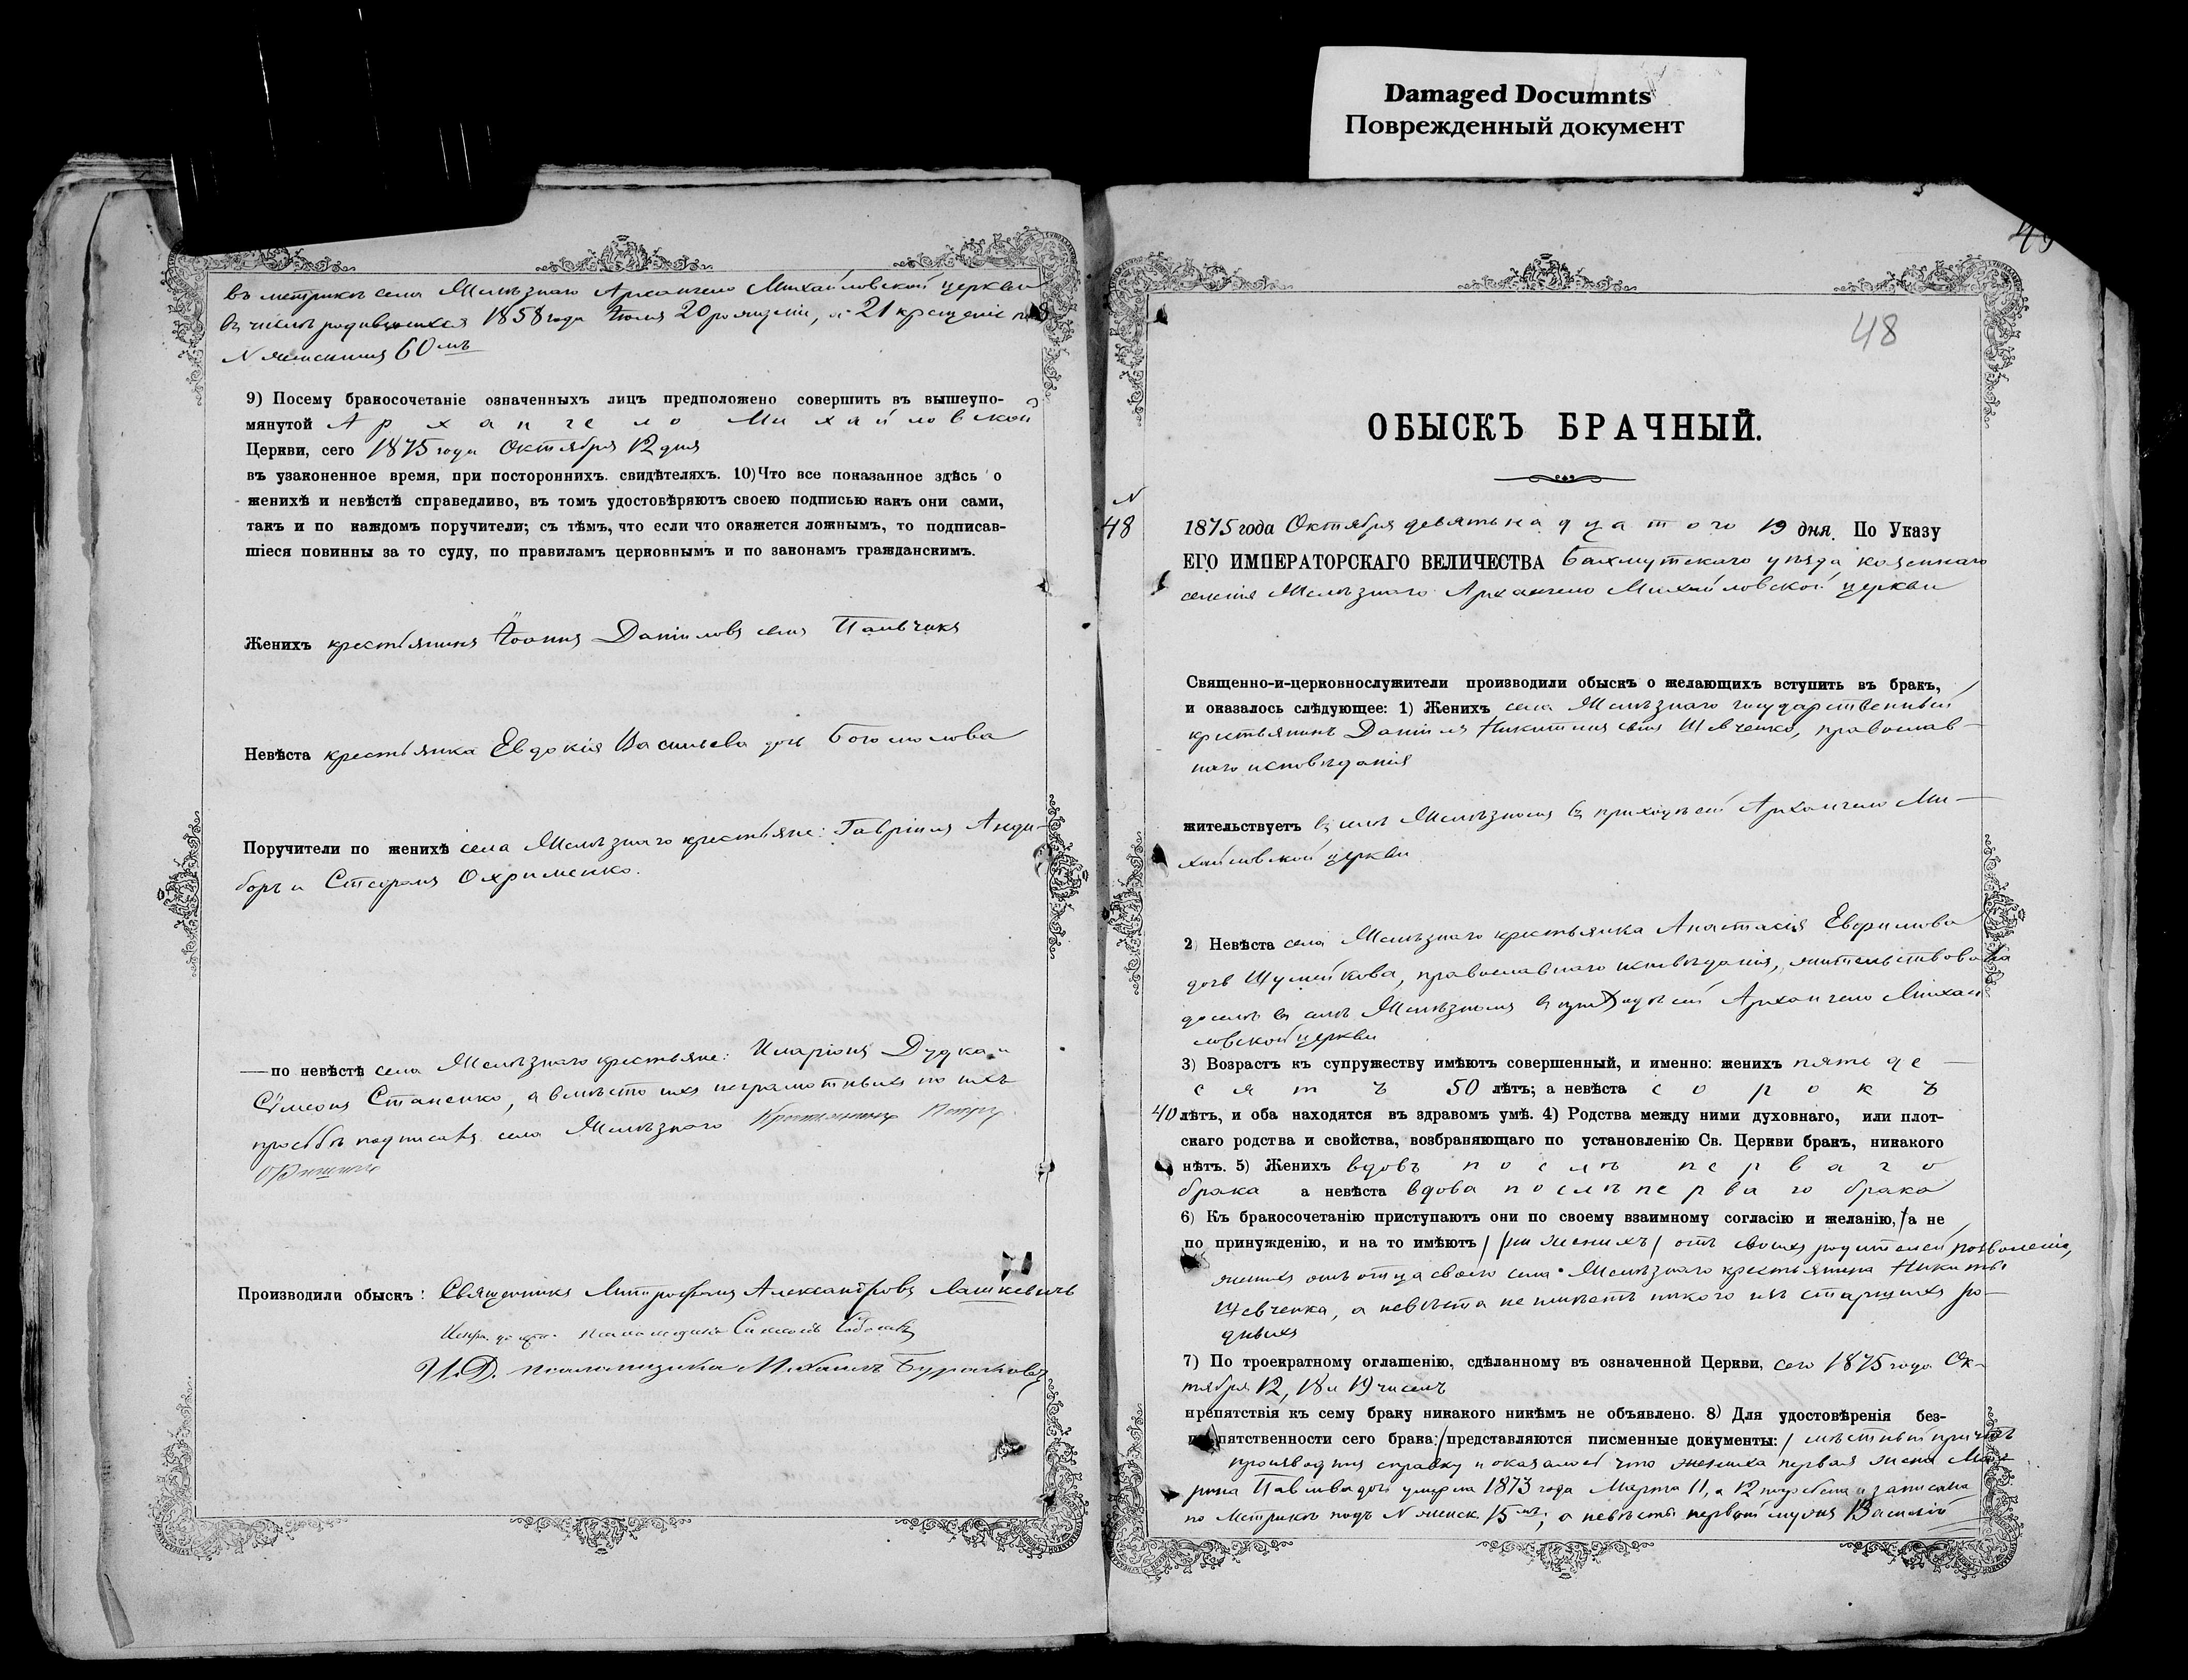 Damaged Documnts
Поврежденный документ
въ метрикѣ села Желѣзнаго Архангело Михайловской церкви
въ числѣ родившихся 1858 года Іюля 20 рожденіе, а 21 крещеніе подъ
N женскимъ 60мъ
9) Посему бракосочетаніе означенныхъ лицъ предположено совершить въ вышеупо-
мянутой Архангело Михайловской
Церкви, сего 1875 года Октября 12 дня
въ узаконенное время, при постороннихъ. свидѣтеляхъ. 10) Что все показанное здѣсь о
женихѣ и невѣстѣ справедливо, въ томъ удостовѣряютъ своею подписью какъ они сами,
такъ и по каждомъ поручители; съ тѣмъ, что если что окажется ложнымъ, то подписав-
шіеся повинны за то суду, по правиламъ церковнымъ и по законамъ гражданскимъ.
Женихъ крестьянинъ Іоаннъ Даніиловъ сынъ Пальчикъ
Невѣста крестьянка Евдокія Васильева дочь Богомолова
Поручители по женихѣ села Желѣзнаго крестьяне: Гавріилъ Анди-
боръ и Стефанъ Охрименко.
— по невѣстѣ села Желѣзнаго крестьяне: Иларіонъ Дудка и
Сѵмеонъ Стаценко, а вмѣсто ихъ неграмотныхъ по ихъ
просьбѣ подписалъ села Желѣзнаго крестьянинъ Петръ
Производили обыскъ: Священникъ Митрофанъ Александровъ Лашкевичъ
И.Д. псаломщика Михаилъ Бураковъ
48
ОБЫСКЪ БРАЧНЫЙ.
N
48
1875 года Октября девятьнадцатого 19 дня. По Указу
ЕГО ИМПЕРАТОРСКАГО ВЕЛИЧЕСТВА Бахмутскаго уѣзда казеннаго
селенія Желѣзнаго Архангело Михайловской церкви
Священно-и-церковнослужители производили обыскъ о желающихъ вступить въ бракъ,
и оказалось слѣдующее: 1) Женихъ села Желѣзнаго государственный
крестьянинъ Даніилъ Никитинъ сынъ Шевченко, православ-
наго исповѣданія
жительствуетъ въ селѣ Желѣзномъ въ приходѣ сей Архангело Ми-
хайловской церкви
2) Невѣста села Желѣзнаго крестьянка Анастасія Евфимова
дочь Шумейкова, православнаго исповѣданія, жительствовала
доселѣ въ селѣ Желѣзномъ въ приходѣ сей Архангело Михай
ловской церкви
3) Возрастъ къ супружеству имѣютъ совершенный, и именно: женихъ пятьде-
сятъ 50 лѣтъ; а невѣста сорокъ
40 лѣтъ, и оба находятся въ здравомъ умѣ. 4) Родства между ними духовнаго, или плот-
скаго родства и свойства, возбраняющаго по установленію Св. Церкви бракъ, никакого
нѣтъ. 5) Женихъ вдовъ послѣ перваго
брака а невѣста вдова послѣ перваго брака
6) Къ бракосочетанію приступаютъ они по своему взаимному согласію и желанію, а не
по принужденію, и на то имѣютъ / женихъ / отъ своихъ родителей позволенія,
женихъ отъ отца своего села Желѣзнаго крестьянина Никиты
Шевченка, а невѣста не имѣетъ никого изъ старшихъ ро-
дныхъ
7) По троекратному оглашенію, сдѣланному въ означенной Церкви, сего 1875 года Ок-
тября 12, 18 и 19 чиселъ
препятствія къ сему браку никакого никѣмъ не объявлено. 8) Для удостовѣренія без-
препятственности сего брака: / представляются писменные документы: / мѣстный причтъ
производилъ справку и оказалось что жениха первая жена Ма-
рина Павлова дочь умерла 1873 года Марта 11, а 12 погребена и записана
по метрикѣ подъ N женск. 15мъ; а невѣсты первый мужъ Василій